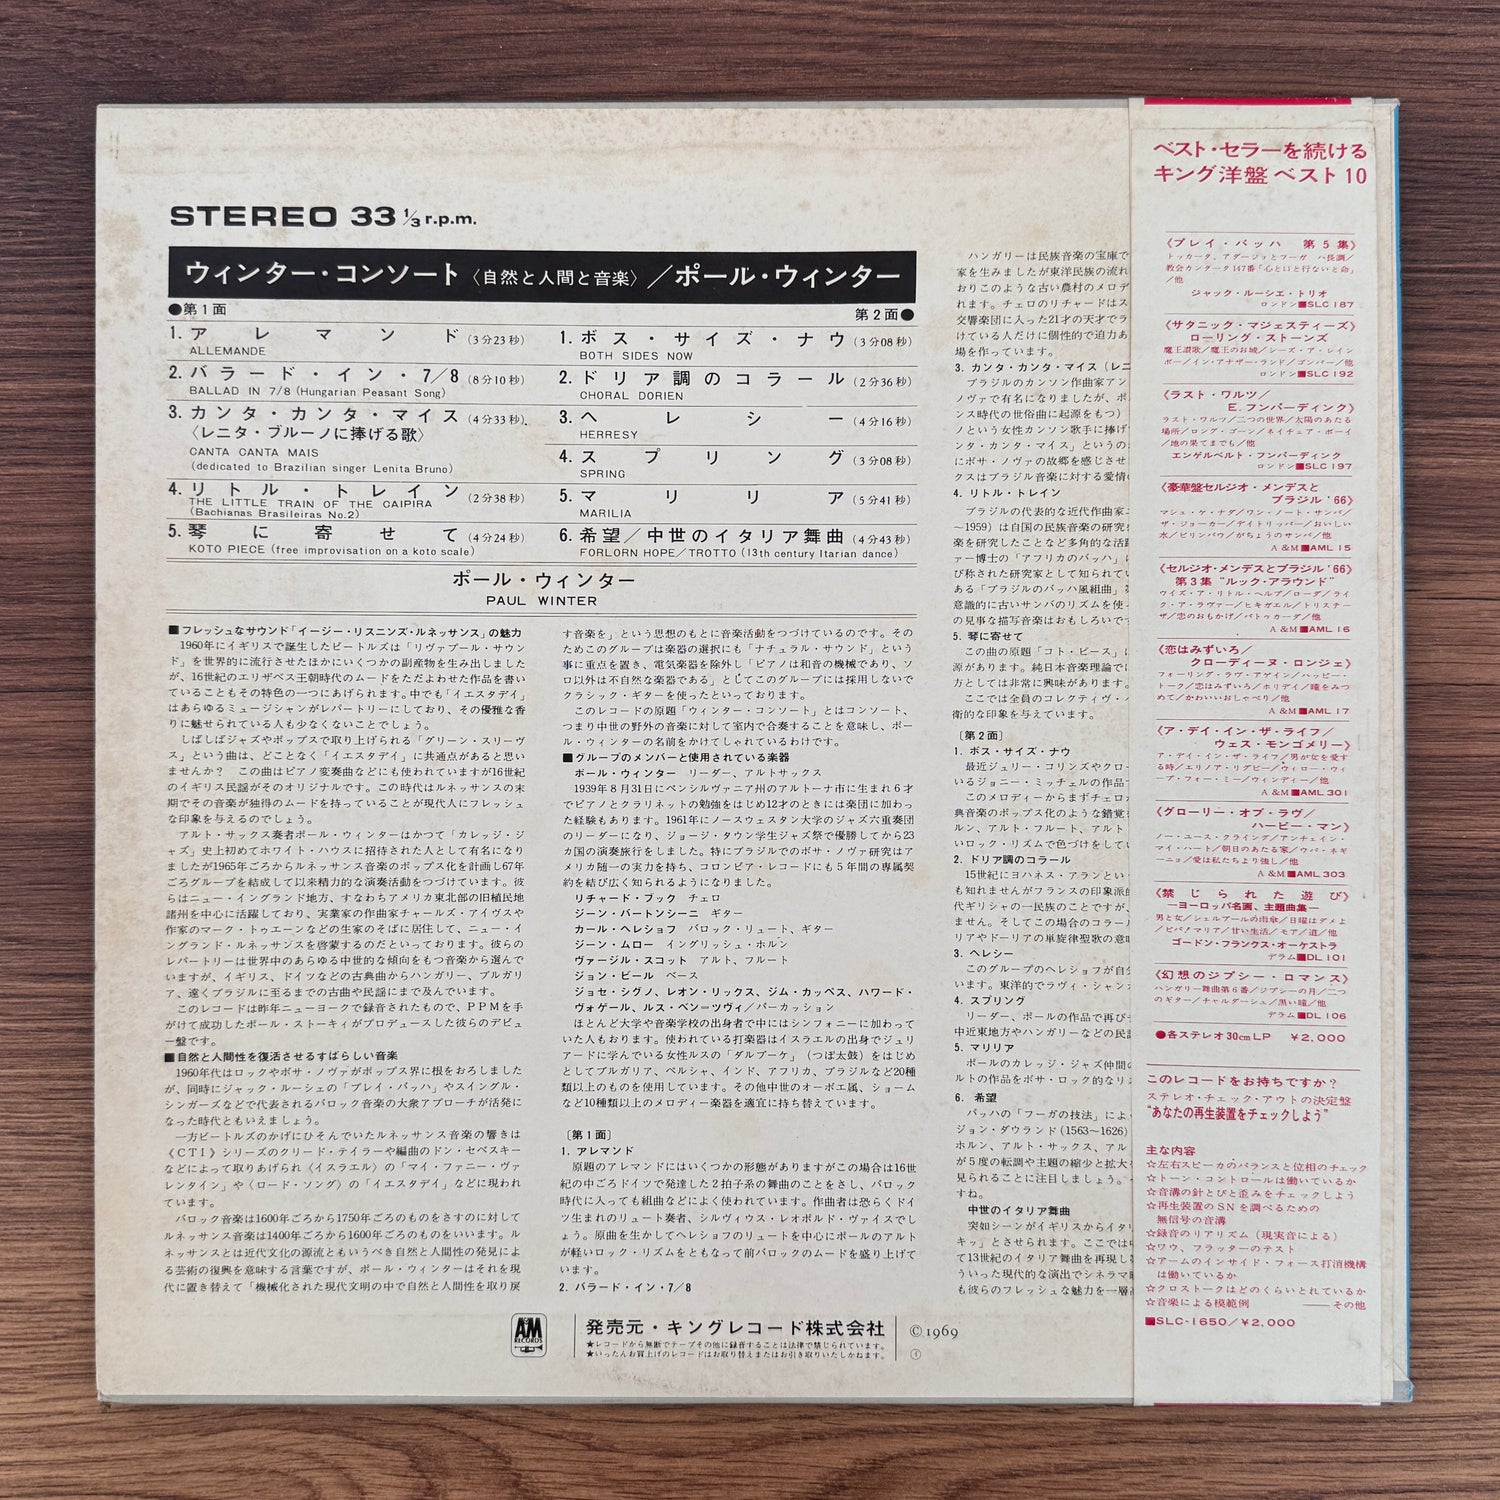 STEREO 33 1/3 r.p.m.
ウィンター・コンソート〈自然と人間と音楽〉／ポール・ウィンター
●第1面
1. アレマンド (3分23秒)
ALLEMANDE
2. バラード・イン・7/8 (8分10秒)
BALLAD IN 7/8 (Hungarian Peasant Song)
3. カンタ・カンタ・マイス (4分33秒)
〈レニタ・ブルーノに捧げる歌〉
CANTA CANTA MAIS
(dedicated to Brazilian singer Lenita Bruno)
4. リトル・トレイン (2分38秒)
THE LITTLE TRAIN OF THE CAIPIRA
(Bachianas Brasileiras No.2)
5. 琴に寄せて (4分24秒)
KOTO PIECE (free improvisation on a koto scale)
第2面●
1. ボス・サイズ・ナウ (3分08秒)
BOTH SIDES NOW
2. ドリア調のコラール (2分36秒)
CHORAL DORIEN
3. ヘレシー (4分16秒)
HERRESY
4. スプリング (3分08秒)
SPRING
5. マリリア (5分41秒)
MARILIA
6. 希望／中世のイタリア舞曲 (4分43秒)
FORLORN HOPE／TROTTO (13th century Itarian dance)
ポール・ウィンター
PAUL WINTER
■フレッシュなサウンド「イージー・リスニンズ・ルネッサンス」の魅力
1960年にイギリスで誕生したビートルズは「リヴァプール・サウン
ド」を世界的に流行させたほかにいくつかの副産物を生み出しました
が、16世紀のエリザベス王朝時代のムードをただよわせた作品を書い
ていることもその特色の一つにあげられます。中でも「イエスタデイ」
はあらゆるミュージシャンがレパートリーにしており、その優雅な香
りに魅せられている人も少なくないことでしょう。
しばしばジャズやポップスで取り上げられる「グリーン・スリーヴ
ス」という曲は、どことなく「イエスタデイ」に共通点があると思い
ませんか？ この曲はピアノ変奏曲などにも使われていますが16世紀
のイギリス民謡がそのオリジナルです。この時代はルネッサンスの末
期でその音楽が独得のムードを持っていることが現代人にフレッシュ
な印象を与えるのでしょう。
アルト・サックス奏者ポール・ウィンターはかつて「カレッジ・ジ
ャズ」史上初めてホワイト・ハウスに招待された人として有名になり
ましたが1965年ごろからルネッサンス音楽のポップス化を計画し67年
ごろグループを結成して以来精力的な演奏活動をつづけています。彼
らはニュー・イングランド地方、すなわちアメリカ東北部の旧植民地
諸州を中心に活躍しており、実業家の作曲家チャールズ・アイヴスや
作家のマーク・トゥエーンなどの生家のそばに居住して、ニュー・イ
ングランド・ルネッサンスを啓蒙するのだといっております。彼らの
レパートリーは世界中のあらゆる中世的な傾向をもつ音楽から選んで
いますが、イギリス、ドイツなどの古典曲からハンガリー、ブルガリ
ア、遠くブラジルに至るまでの古曲や民謡にまで及んでいます。
このレコードは昨年ニューヨークで録音されたもので、PPMを手
がけて成功したポール・ストーキィがプロデュースした彼らのデビュ
ー盤です。
■自然と人間性を復活させるすばらしい音楽
1960年代はロックやボサ・ノヴァがポップス界に根をおろしました
が、同時にジャック・ルーシェの「プレイ・バッハ」やスイングル・
シンガーズなどで代表されるバロック音楽の大衆アプローチが活発に
なった時代ともいえましょう。
一方ビートルズのかげにひそんでいたルネッサンス音楽の響きは
《CTI》シリーズのクリード・テイラーや編曲のドン・セベスキー
などによって取りあげられ〈イスラエル〉の「マイ・ファニー・ヴァ
レンタイン」や〈ロード・ソング〉の「イエスタデイ」などに現われ
ています。
バロック音楽は1600年ごろから1750年ごろのものをさすのに対して
ルネッサンス音楽は1400年ごろから1600年ごろのものをいいます。ル
ネッサンスとは近代文化の源流ともいうべき自然と人間性の発見によ
る芸術の復興を意味する言葉ですが、ポール・ウィンターはそれを現
代に置き替えて「機械化された現代文明の中で自然と人間性を取り戻
す音楽を」という思想のもとに音楽活動をつづけているのです。その
ためこのグループは楽器の選択にも「ナチュラル・サウンド」という
事に重点を置き、電気楽器を除外し「ピアノは和音の機械であり、ソ
ロ以外は不自然な楽器である」としてこのグループには採用しないで
クラシック・ギターを使ったといっております。
このレコードの原題「ウィンター・コンソート」とはコンソート、
つまり中世の野外の音楽に対して室内で合奏することを意味し、ポー
ル・ウィンターの名前をかけてしゃれているわけです。
■グループのメンバーと使用されている楽器
ポール・ウィンター リーダー、アルトサックス
1939年8月31日にペンシルヴァニア州のアルトーナ市に生まれ6才
でピアノとクラリネットの勉強をはじめ12才のときには楽団に加わっ
た経験もあります。1961年にノースウェスタン大学のジャズ六重奏団
のリーダーになり、ジョージ・タウン学生ジャズ祭で優勝してから23
カ国の演奏旅行をしました。特にブラジルでのボサ・ノヴァ研究はア
メリカ随一の実力を持ち、コロンビア・レコードにも5年間の専属契
約を結び広く知られるようになりました。
リチャード・ブック チェロ
ジーン・バートンシーニ ギター
カール・ヘレショフ バロック・リュート、ギター
ジーン・ムロー イングリッシュ・ホルン
ヴァージル・スコット アルト、フルート
ジョン・ビール ベース
ジョセ・シグノ、レオン・リックス、ジム・カッペス、ハワード・
ヴォゲール、ルス・ベンーツヴィ／パーカッション
ほとんど大学や音楽学校の出身者で中にはシンフォニーに加わって
いた人もおります。使われている打楽器はイスラエルの出身でジュリ
アードに学んでいる女性ルスの「ダルブーケ」（つぼ太鼓）をはじめ
としてブルガリア、ペルシャ、インド、アフリカ、ブラジルなど20種
類以上のものを使用しています。その他中世のオーボエ属、ショーム
など10種類以上のメロディー楽器を適宜に持ち替えています。
〔第1面〕
1. アレマンド
原題のアレマンドにはいくつかの形態がありますがこの場合は16世
紀の中ごろドイツで発達した2拍子系の舞曲のことをさし、バロック
時代に入っても組曲などによく使われています。作曲者は恐らくドイ
ツ生まれのリュート奏者、シルヴィウス・レオポルド・ヴァイスでし
ょう。原曲を生かしてヘレショフのリュートを中心にポールのアルト
が軽いロック・リズムをともなって前バロックのムードを盛り上げて
います。
2. バラード・イン・7/8
ハンガリーは民族音楽の宝庫で
家を生みましたが東洋民族の流れ
おりこのような古い農村のメロデ
れます。チェロのリチャードはス
交響楽団に入った21才の天才でラ
けている人だけに個性的で迫力あ
場を作っています。
3. カンタ・カンタ・マイス（レニ
ブラジルのカンソン作曲家アン
ノヴァで有名になりましたが、ボ
ンス時代の世俗曲に起源をもつ）
ノという女性カンソン歌手に捧げ
ンタ・カンタ・マイス」というの
にボサ・ノヴァの故郷を感じさせ
クスはブラジル音楽に対する愛情
4. リトル・トレイン
ブラジルの代表的な近代作曲家
～1959）は自国の民族音楽の研究
楽を研究したことなど多角的な活
ァー博士の「アフリカのバッハ」
び称された研究家として知られてい
ある「ブラジルのバッハ風組曲」
意識的に古いサンバのリズムを使
の見事な描写音楽はおもしろいで
5. 琴に寄せて
この曲の原題「コト・ピース」に
源があります。純日本音楽理論で
方としては非常に興味があります。
ここでは全員のコレクティヴ・
衛的な印象を与えています。
〔第2面〕
1. ボス・サイズ・ナウ
最近ジュリー・コリンズやクロー
いるジョニー・ミッチェルの作品
このメロディーからまずチェロ
典音楽のポップス化のような錯覚
ルン、アルト・フルート、アルト
い・ロック・リズムで色づけをして
2. ドリア調のコラール
15世紀にヨハネス・アランとい
も知れませんがフランスの印象派
代ギリシャの一民族のことですが、
ません。そしてこの場合のコラー
リアやドーリアの単旋律聖歌の意
3. ヘレシー
このグループのヘレショフが自
います。東洋的でラヴィ・シャン
4. スプリング
リーダー、ポールの作品で再び
中近東地方やハンガリーなどの民
5. マリリア
ポールのカレッジ・ジャズ仲間
ルトの作品をボサ・ロック的なリ
6. 希望
バッハの「フーガの技法」によ
ジョン・ダウランド(1563～1626)
ホルン、アルト・サックス、アル
が5度の転調や主題の縮少と拡大
見られることに注目しましょう。
すね。
中世のイタリア舞曲
突如シーンがイギリスからイタリ
キッ」とさせられます。ここでは
て13世紀のイタリア舞曲を再現し
ういった現代的な演出でシネラマ
も彼らのフレッシュな魅力を一層
A&M RECORDS
発売元・キングレコード株式会社
★レコードから無断でテープその他に録音することは法律で禁じられています。
★いったんお買上げのレコードはお取り替えまたはお引き取りいたしかねます。
©1969
ベスト・セラーを続ける
キング洋盤ベスト10
《プレイ・バッハ 第5集》
トッカータ、アダージョとフーガ ハ長調／
教会カンタータ147番「心と口と行ないと命」
／他
ジャック・ルーシエ・トリオ
ロンドン■SLC 187
《サタニック・マジェスティーズ》
ローリング・ストーンズ
魔王讃歌／魔王のお城／シーズ・ア・レイン
ボー／イン・アナザー・ランド／ゴンパー／他
ロンドン■SLC 192
《ラスト・ワルツ／
E. フンパーディンク》
ラスト・ワルツ／二つの世界／太陽のあたる
場所／ロング・ゴーン／ネイチェア・ボーイ
／地の果てまでも／他
エンゲルベルト・フンパーディンク
ロンドン■SLC 197
《豪華盤セルジオ・メンデスと
ブラジル '66》
マシュ・ケ・ナダ／ワン・ノート・サンバ／
ザ・ジョーカー／デイトリッパー／おいしい
水／ビリンバウ／がちょうのサンバ／他
A&M■AML 15
《セルジオ・メンデスとブラジル '66》
第3集 “ルック・アラウンド”
ウイズ・ア・リトル・ヘルプ／ローダ／ライ
ク・ア・ラヴァー／ヒキガエル／トリステー
ザ／恋のおもかげ／バトゥカーダ／他
A&M■AML 16
《恋はみずいろ／
クローディーヌ・ロンジェ》
フォーリング・ラヴ・アゲイン／ハッピー・
トーク／恋はみずいろ／ホリデイ／瞳をみつ
めて／かわいいおしゃべり／他
A&M■AML 17
《ア・デイ・イン・ザ・ライフ／
ウェス・モンゴメリー》
ア・デイ・イン・ザ・ライフ／男が女を愛す
る時／エリノア・リグビー／ウィロー・ウィ
ープ・フォー・ミー／ウィンディー／他
A&M■AML 301
《グローリー・オブ・ラヴ／
ハービー・マン》
ノー・ユース・クライング／アンチェイン・
マイ・ハート／朝日のあたる家／ウパ・ネギ
ーニョ／愛は私たちより強し／他
A&M■AML 303
《禁じられた遊び》
―ヨーロッパ名画、主題曲集―
男と女／シェルブールの雨傘／日曜はダメよ
／ビバ！マリア／甘い生活／モア／道／他
ゴードン・フランクス・オーケストラ
デラム■DL 101
《幻想のジプシー・ロマンス》
ハンガリー舞曲第6番／ジプシーの月／二つ
のギター／チャルダーシュ／黒い瞳／他
デラム■DL 106
●各ステレオ30cmLP ￥2,000
このレコードをお持ちですか？
ステレオ・チェック・アウトの決定盤
“あなたの再生装置をチェックしよう”
主な内容
☆左右スピーカのバランスと位相のチェック
☆トーン・コントロールは働いているか
☆音溝の針とびと歪みをチェックしよう
☆再生装置のSNを調べるための
無信号の音溝
☆録音のリアリズム（現実音による）
☆ワウ、フラッターのテスト
☆アームのインサイド・フォース打消機構
は働いているか
☆クロストークはどのくらいとれているか
☆音楽による模範例 ――その他
■SLC-1650／￥2,000